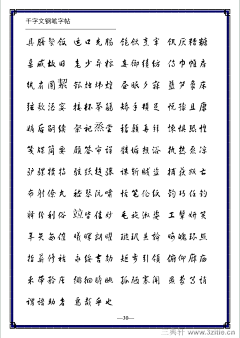 千字文钢笔字帖
具膳餐饭 适口充肠 饱饫烹宰 饥厌糟糠
亲戚故旧 老少异粮 妾御绩纺 侍巾帷房
纨扇圆絜 银烛炜煌 昼眠夕寐 蓝笋象床
弦歌酒宴 接杯举觞 矫手顿足 悦豫且康
嫡后嗣续 祭祀蒸尝 稽颡再拜 悚惧恐惶
笺牒简要 顾答审详 骸垢想浴 执热愿凉
驴骡犊特 骇跃超骧 诛斩贼盗 捕获叛亡
布射僚丸 嵇琴阮啸 恬笔伦纸 钧巧任钓
释纷利俗 竝皆佳妙 毛施淑姿 工颦妍笑
年矢每催 曦晖朗曜 璇玑悬斡 晦魄环照
指薪修祜 永绥吉劭 矩步引领 俯仰廊庙
束带矜庄 徘徊瞻眺 孤陋寡闻 愚蒙等诮
谓语助者 焉哉乎也